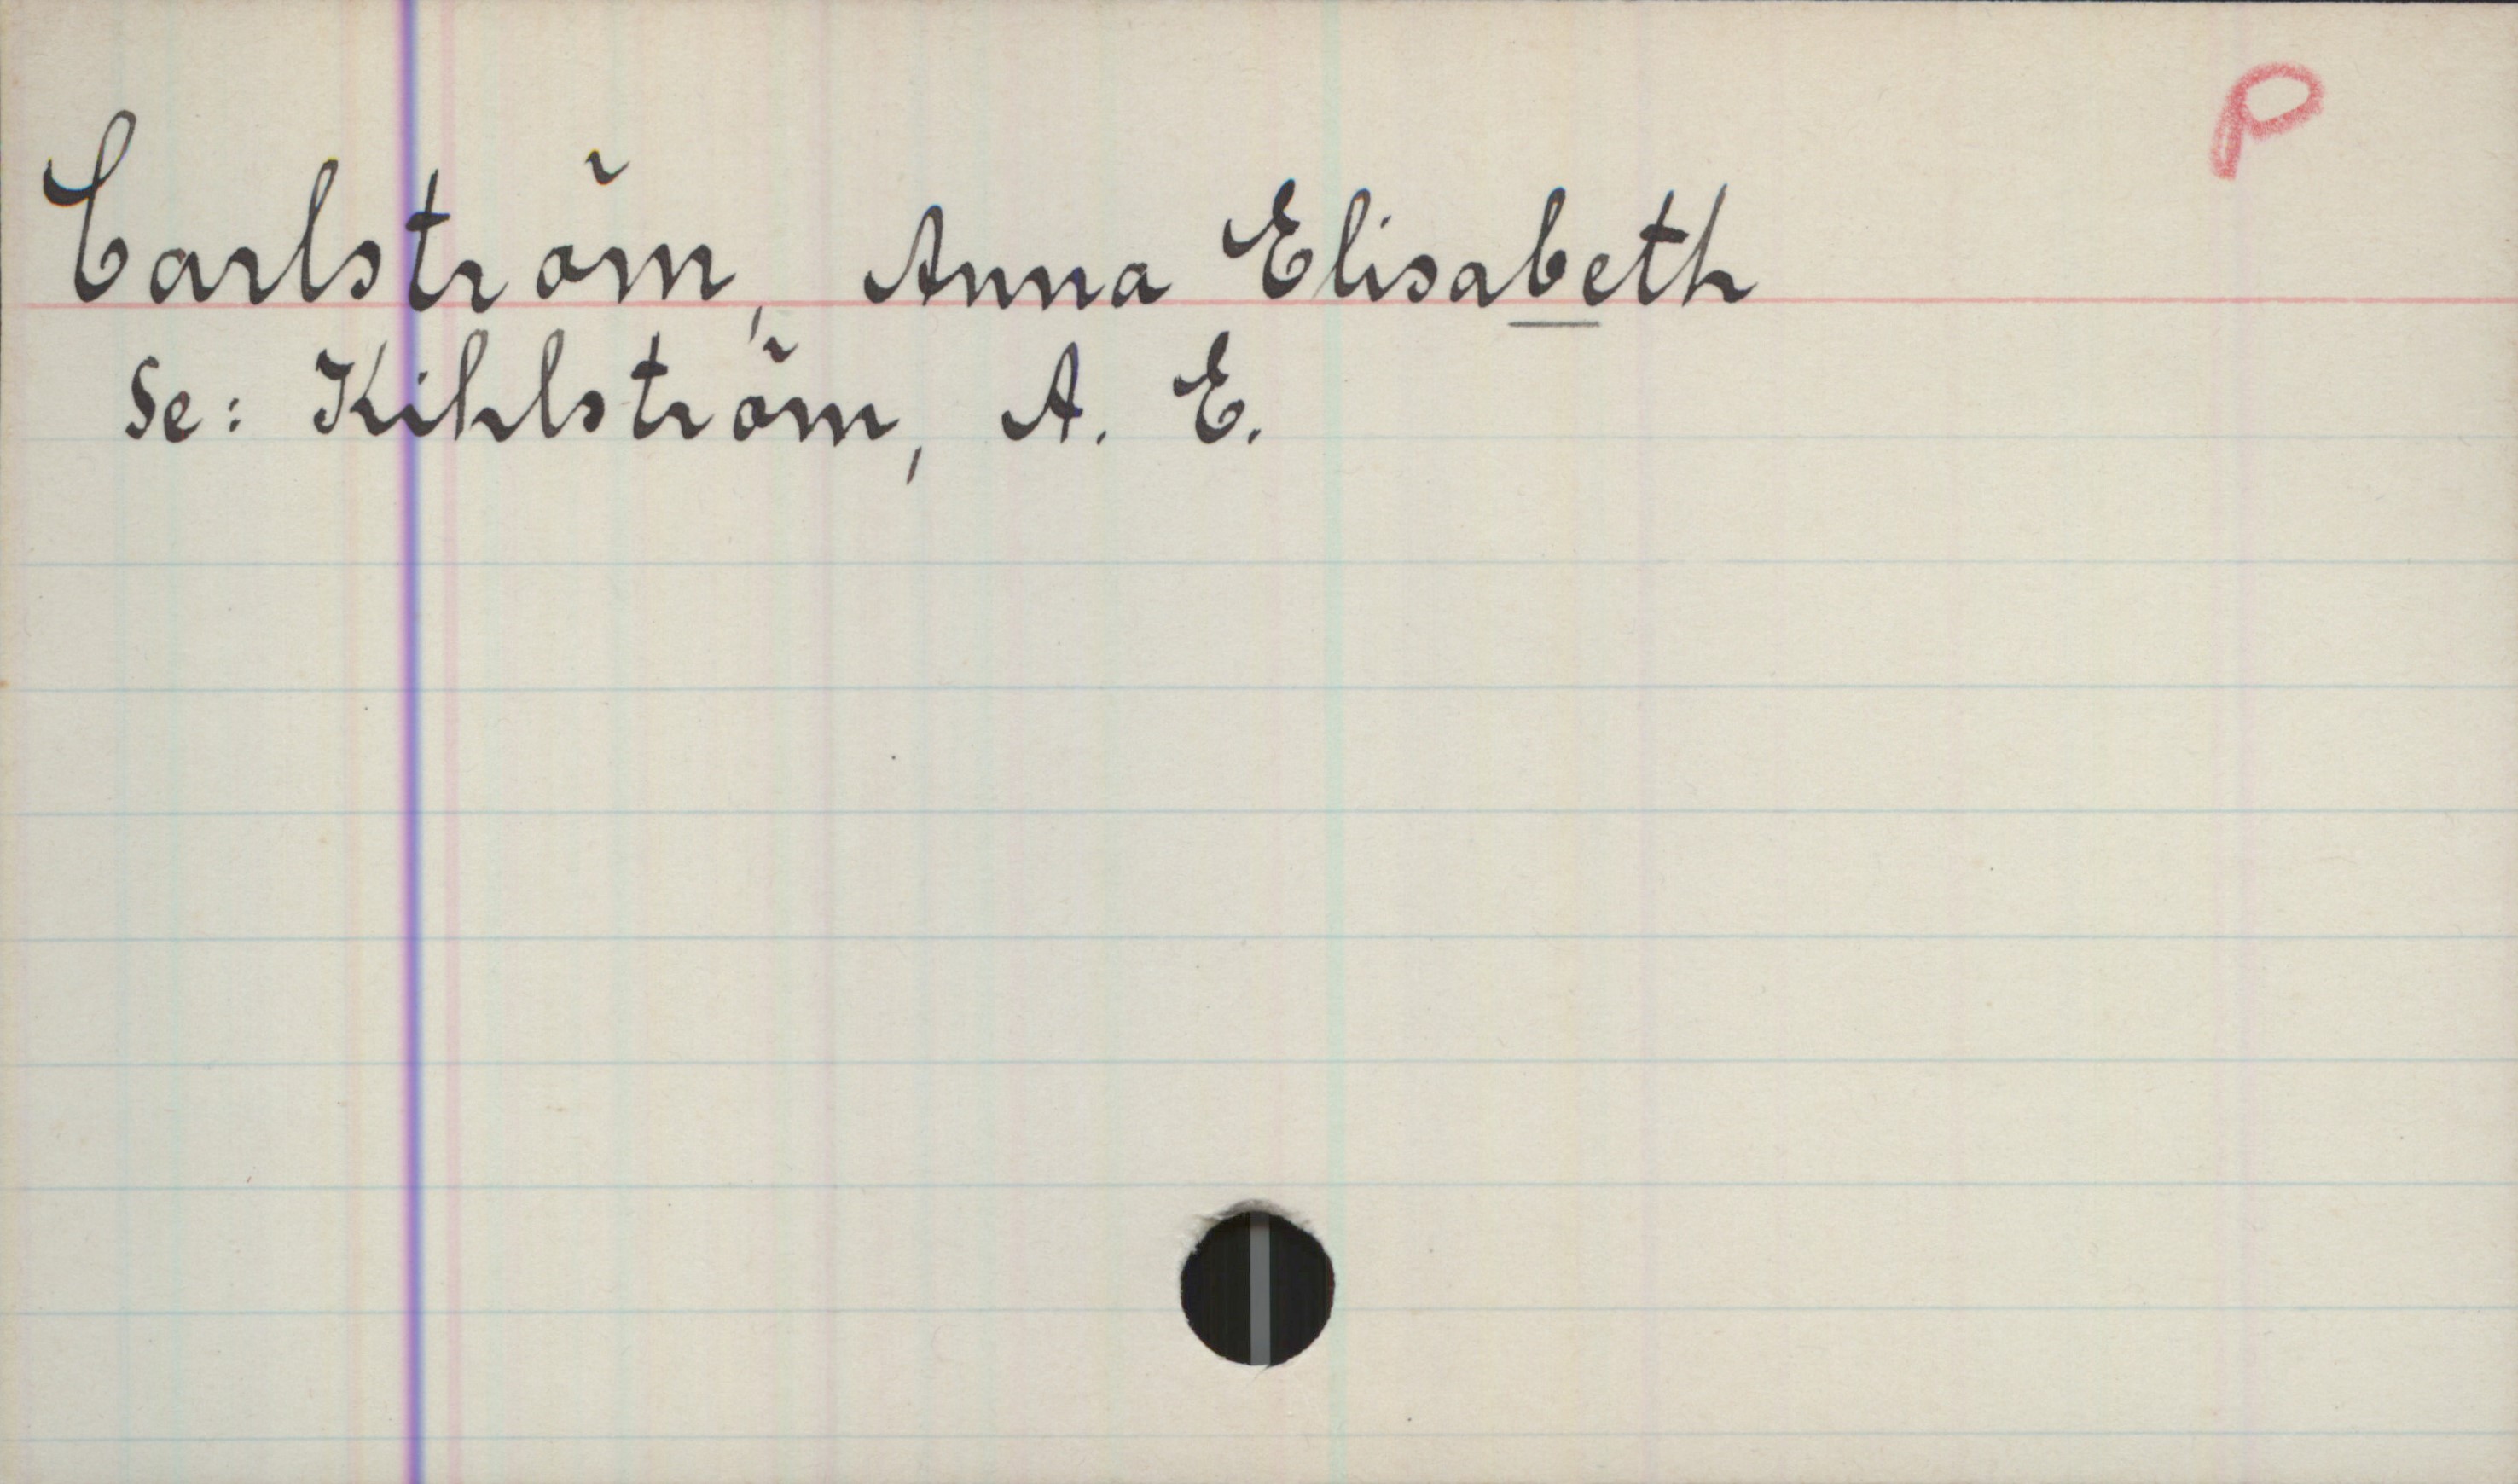 P
Carlström, Anna Elisabeth
Se: Kihlström, A. E.